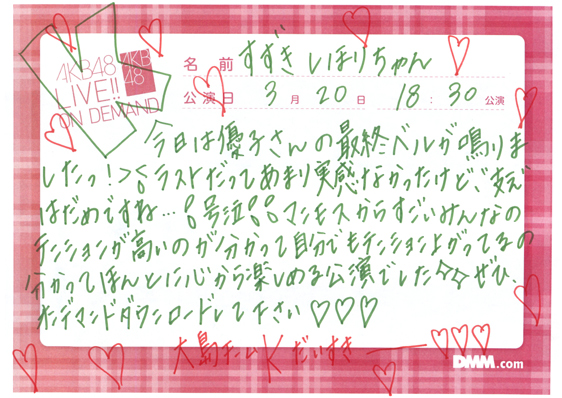 AKB48
LIVE!!
ON DEMAND
AKB
48
名前 すずきしほりちゃん
公演日 3月20日 18:30公演
今日は優子さんの最終ベルが鳴りま
したっ!><ラストだってあまり実感なかったけど、ご支え
はだめですね…号泣 マンモスからすごいみんなの
テンションが高いのが分かって自分でもテンション上がってるの
分かってほんとに心から楽しめる公演でした☆☆ぜひ、
オンデマンドダウンロードして下さい♡♡♡
大島チームKだいすき――♡♡♡
DMM.com